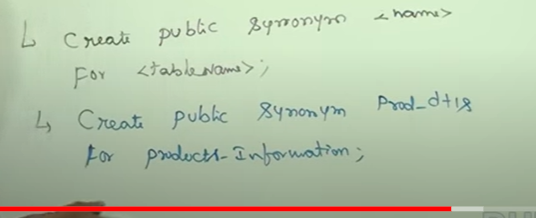 ↳ Create public Synonym <name>
For <tablename>;
↳ Create public Synonym Prod_dtls
for products_Information;